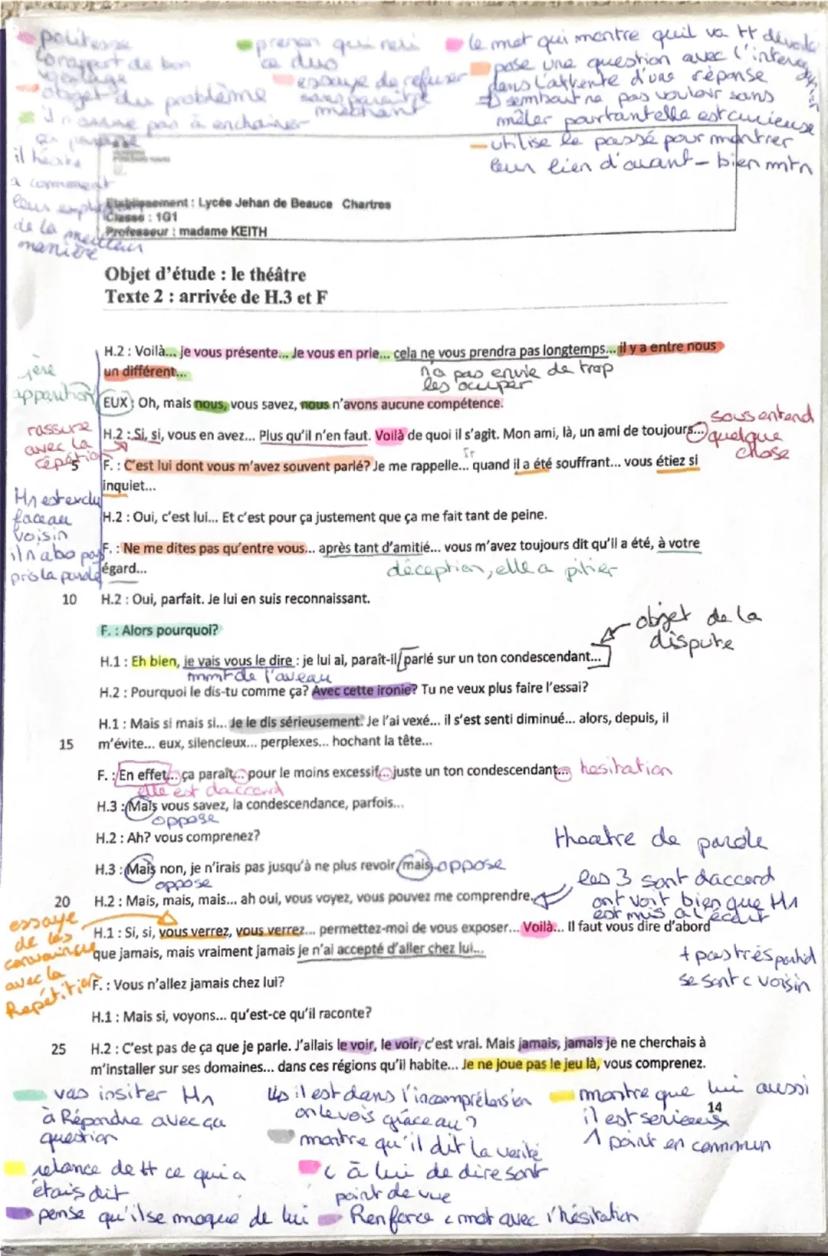 politesse
prenom qui reli
le mot qui montre quil va tt dévoile
rapport de bon
ce duo
pose une question avec l'inter
essaye de refuser
dans l'attente d'une réponse
objet du problème
sans paraitre
méchant
semblait ne pas vouloir sans
pas à enchainer
mêler pourtant elle est curieuse
utilise le passé pour montrer
il hésite
leur lien d'avant - bien mtn
a comment
leur
de la meilleur
manière
Etablissement : Lycée Jehan de Beauce Chartres
Classe : 1G1
Professeur : madame KEITH
Objet d'étude : le théâtre
Texte 2 : arrivée de H.3 et F
H.2 : Voilà... je vous présente... Je vous en prie... cela ne vous prendra pas longtemps... il y a entre nous
un différent...
n'a pas envie de trop
les occuper
1ère
apparution
EUX : Oh, mais nous, vous savez, nous n'avons aucune compétence.
sous entend
quelque
chose
H.2 : Si, si, vous en avez... Plus qu'il n'en faut. Voilà de quoi il s'agit. Mon ami, là, un ami de toujours...
rassure
avec la
répétition
5 F. : C'est lui dont vous m'avez souvent parlé? Je me rappelle... quand il a été souffrant... vous étiez si
inquiet...
H1 est exclu
face au
voisin
il n'a bo pas
pris la parole
H.2 : Oui, c'est lui... Et c'est pour ça justement que ça me fait tant de peine.
F. : Ne me dites pas qu'entre vous... après tant d'amitié... vous m'avez toujours dit qu'il a été, à votre
égard...
déception, elle a pitier
10 H.2 : Oui, parfait. Je lui en suis reconnaissant.
F. : Alors pourquoi?
objet de la
dispute
H.1 : Eh bien, je vais vous le dire : je lui ai, paraît-il, parlé sur un ton condescendant...
mmt de l'aveau
H.2 : Pourquoi le dis-tu comme ça? Avec cette ironie? Tu ne veux plus faire l'essai?
H.1 : Mais si mais si... Je le dis sérieusement. Je l'ai vexé... il s'est senti diminué... alors, depuis, il
15 m'évite... eux, silencieux... perplexes... hochant la tête...
F. : En effet... ça paraît... pour le moins excessif... juste un ton condescendant...
hesitation
elle est d'accord
H.3 : Mais vous savez, la condescendance, parfois...
oppose
H.2 : Ah? vous comprenez?
theatre de parole
H.3 : Mais non, je n'irais pas jusqu'à ne plus revoir, mais,
oppose
oppose
20 H.2 : Mais, mais, mais... ah oui, vous voyez, vous pouvez me comprendre.
les 3 sont d'accord
ont voit bien que H1
est mis a l'écart
+ pas très partial
se sont c voisin
essaye
de les
convaincre
avec la
Repétition
H.1 : Si, si, vous verrez, vous verrez... permettez-moi de vous exposer... Voilà... Il faut vous dire d'abord
que jamais, mais vraiment jamais je n'ai accepté d'aller chez lui...
F. : Vous n'allez jamais chez lui?
H.1 : Mais si, voyons... qu'est-ce qu'il raconte?
25 H.2 : C'est pas de ça que je parle. J'allais le voir, le voir, c'est vrai. Mais jamais, jamais je ne cherchais à
m'installer sur ses domaines... dans ces régions qu'il habite... Je ne joue pas le jeu là, vous comprenez.
14
vas insiter H1
à Répondre avec ça
question
il est dans l'incompréhension
on le vois grâce au ?
montre que lui aussi
il est serieux
1 point en commun
montre qu'il dit la verité
relance de tt ce qui a
étais dit
c à lui de dire sont
point de vue
pense qu'il se moque de lui
Renforce c mot avec l'hésitation